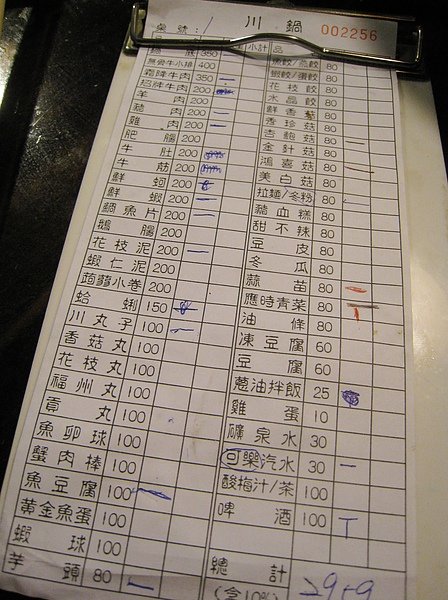 桌號: / 川鍋 002256
小計 品
鍋底 350
無骨牛小排 400
霜降牛肉 350
招牌牛肉 200
羊肉 200
豬肉 200
雞肉 200
肥腸 200
牛肚 200
牛筋 200
鮮蚵 200
鮮蝦 200
鯛魚片 200
鴨腸 200
花枝泥 200
蝦仁泥 200
蒟蒻小卷 200
蛤蜊 150
川丸子 100
香菇丸 100
花枝丸 100
福州丸 100
貢丸 100
魚卵球 100
蟹肉棒 100
魚豆腐 100
黃金魚蛋 100
蝦球 100
芋頭 80
魚餃/燕餃 80
蝦餃/蛋餃 80
花枝餃 80
水晶餃 80
鮮香菇 80
秀珍菇 80
杏鮑菇 80
金針菇 80
鴻喜菇 80
美白菇 80
拉麵/冬粉 80
豬血糕 80
甜不辣 80
豆皮 80
冬瓜 80
蒜苗 80
應時青菜 80
油條 80
凍豆腐 60
豆腐 60
蔥油拌飯 25
雞蛋 10
礦泉水 30
可樂汽水 30
酸梅汁/茶 100
啤酒 100 T
總計
(含10%)